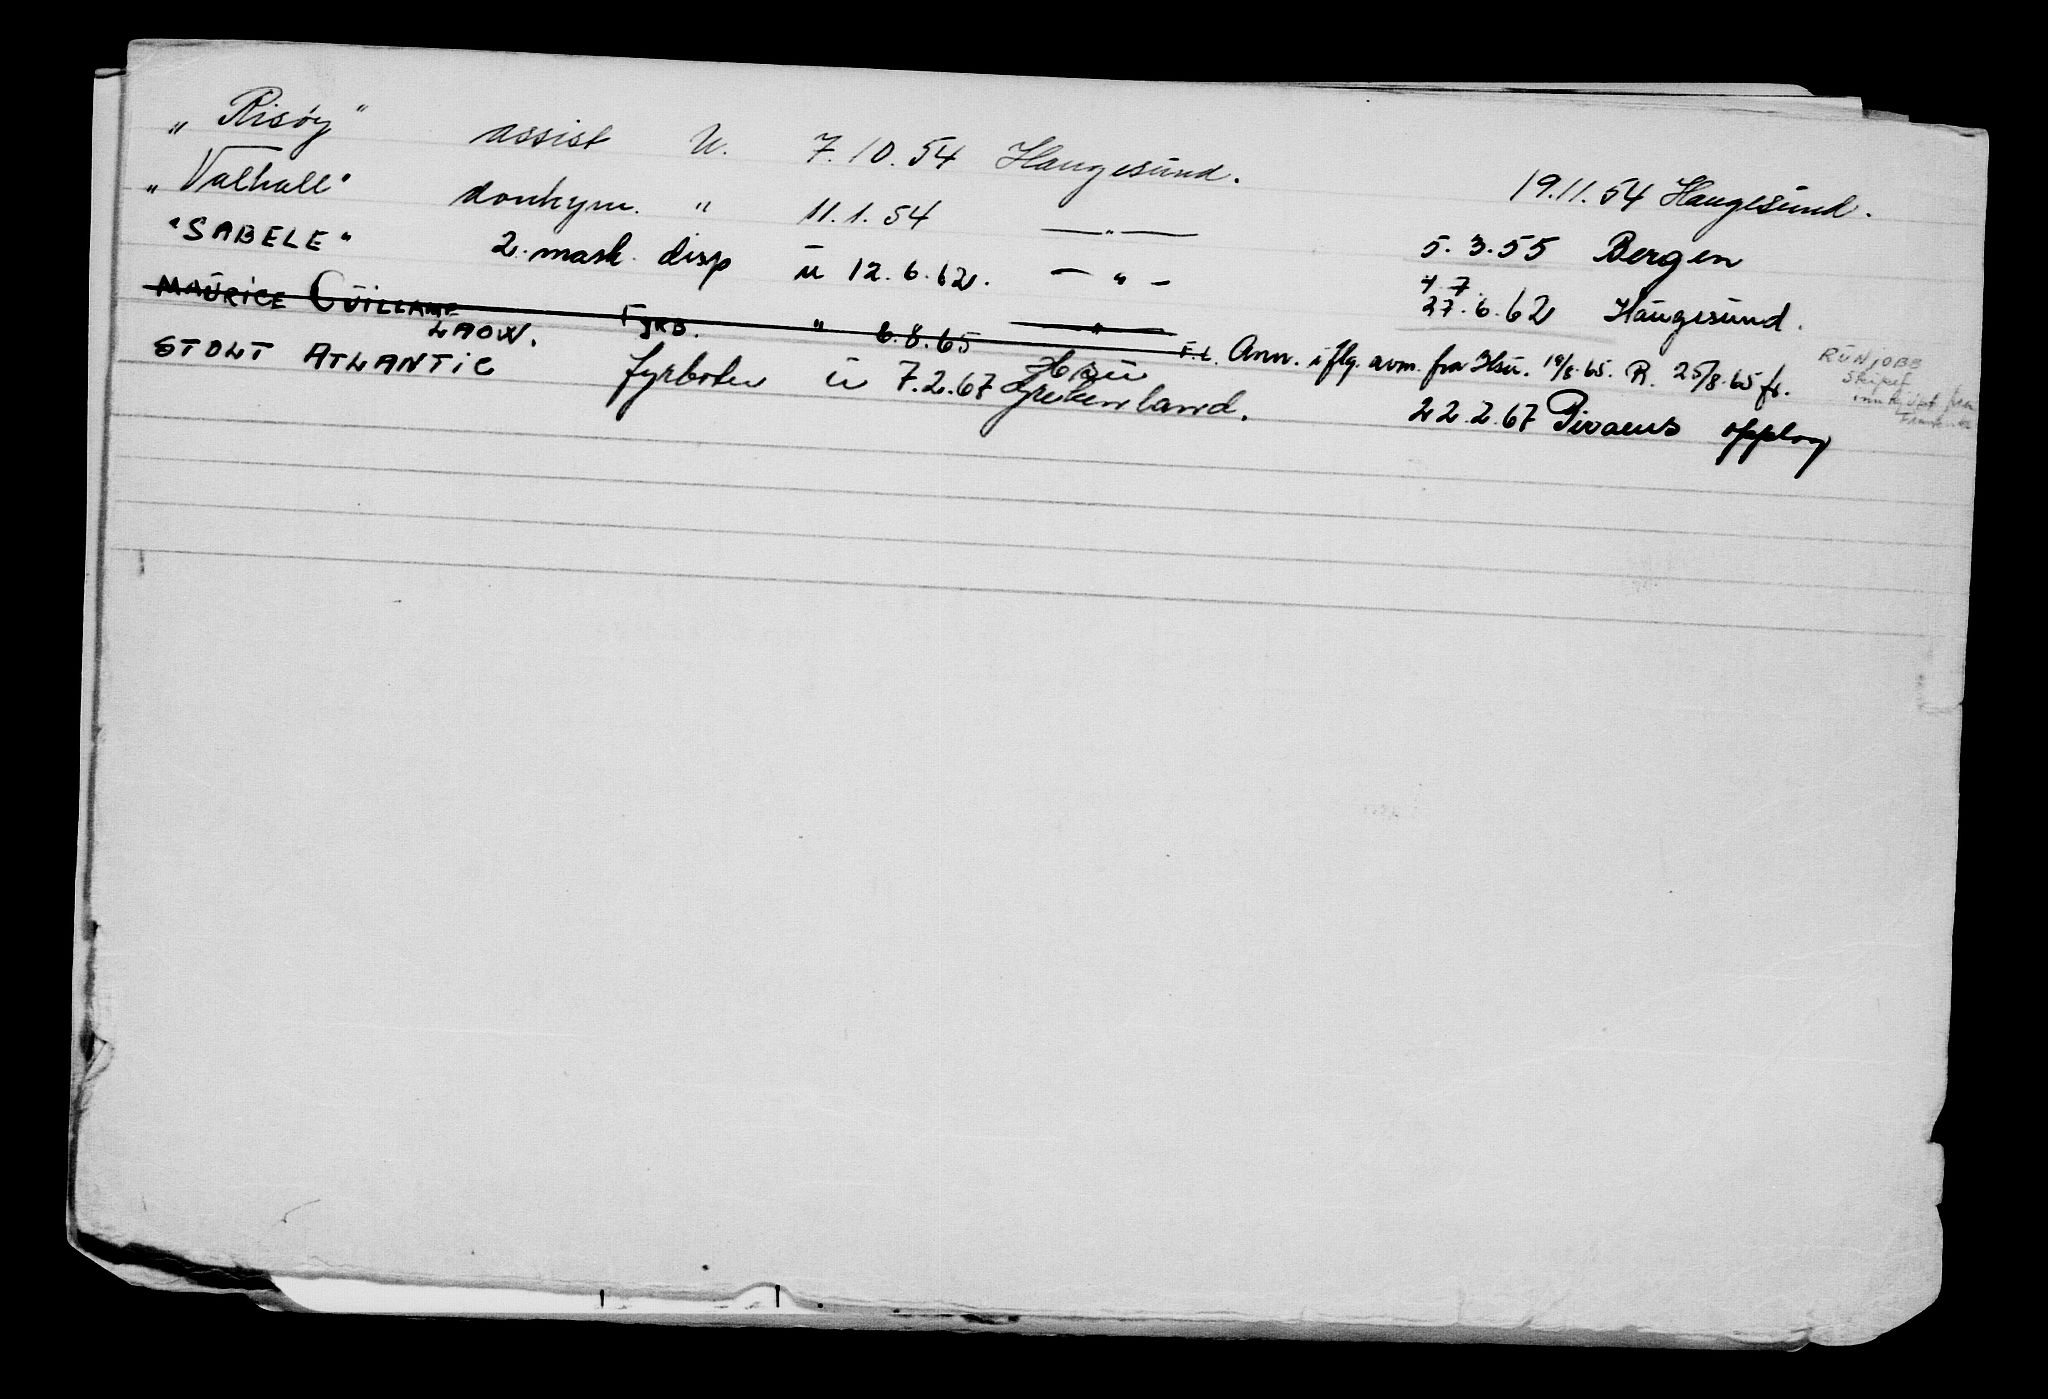 „Risöy" assist U. 7.10.54 Haugesund. 19.11.54 Haugesund.
„Valhall" donkym. " 11.1.54 —"— 5.3.55 Bergen
"SABELE" 2. mask. disp u 12.6.62. —"— 4 7 27.6.62 Haugesund.
MAURICE GUILLAME Fyrb. " 6.8.65 —"— F.l. Ann. iflg. avm. fra Hsu. 19/8.65. R. 25/8.65 fr.
LAOW.
STOLT ATLANTIC fyrbøter u 7.2.67 Grekenland. 22.2.67 Piraeus opplag
RUNJOBB